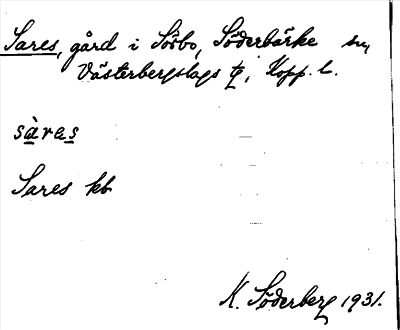 Sares, gård i Sösbo, Söderbärke sn,
Västerbergslags tg, Kopp. l.
sàras
Sares kb
K. Söderberg 1931.